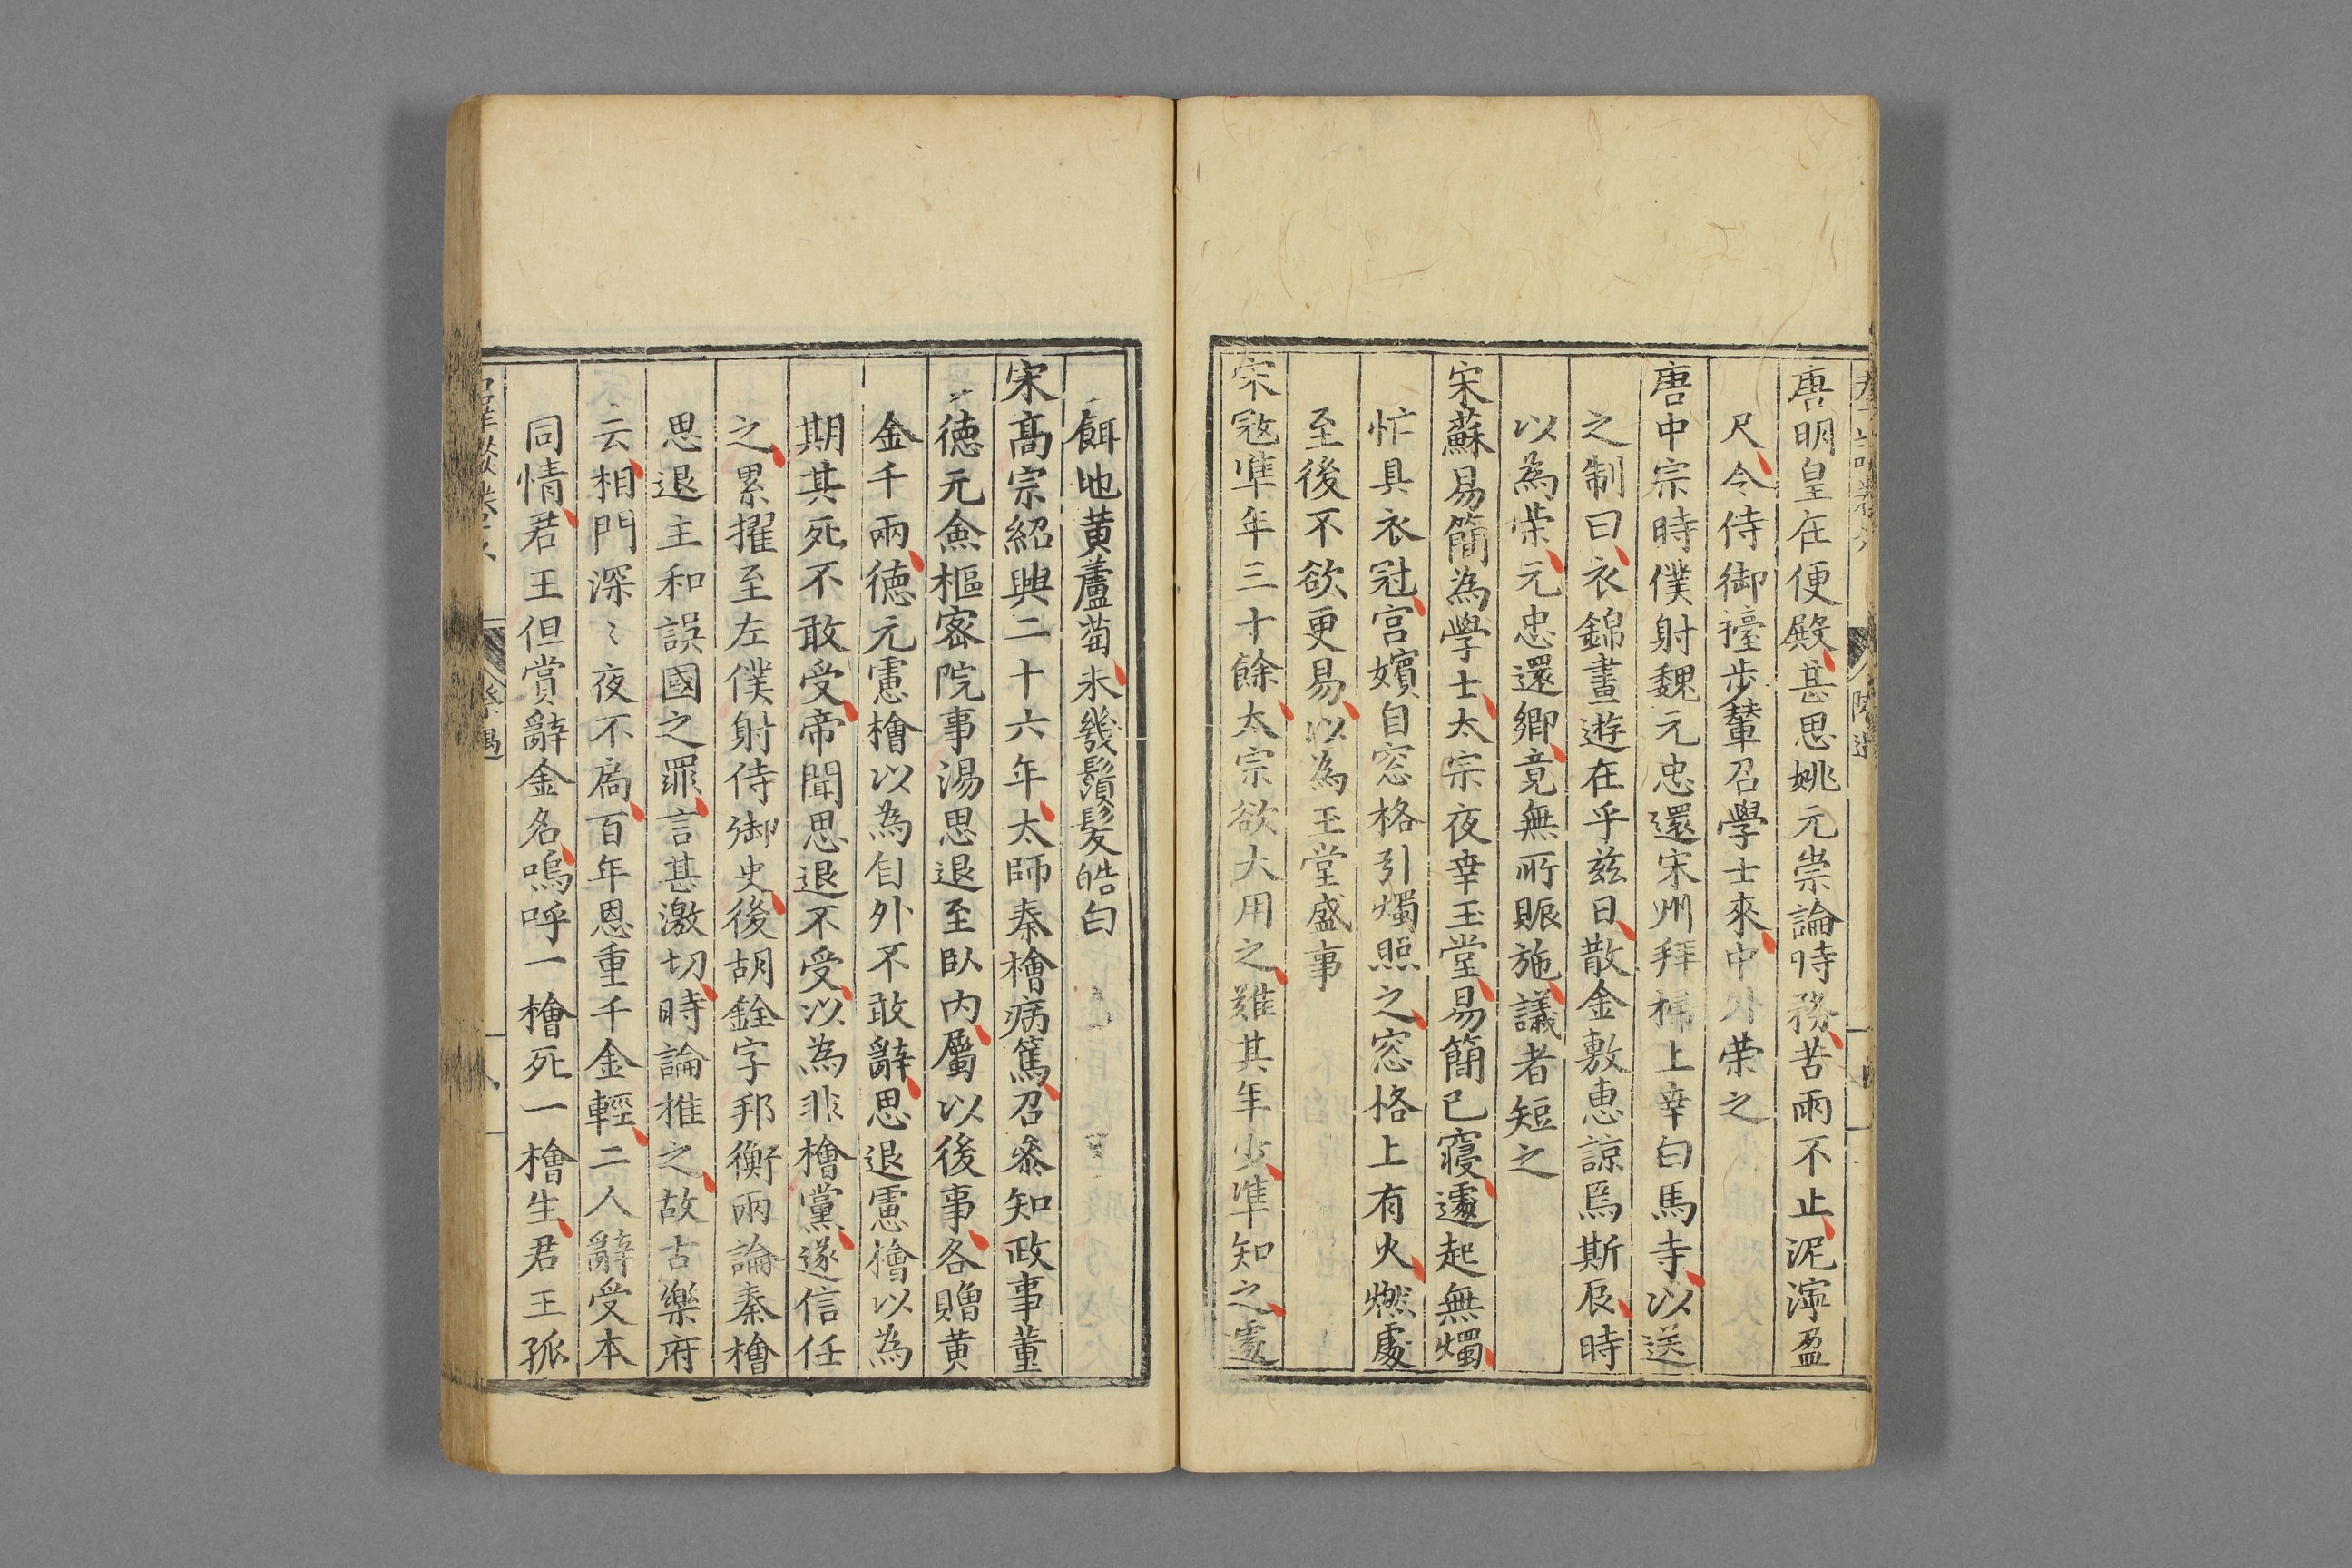 唐明皇在便殿甚思姚元崇論時務苦雨不止泥濘盈
尺令侍御擡步輦召學士來中外荣之
唐中宗時僕射魏元忠還宋州拜掃上幸白馬寺以送
之制曰衣錦晝遊在乎兹日散金敷恵諒爲斯辰時
以為荣元忠還鄉竟無所賑施議者短之
宋蘇易簡為學士太宗夜幸玉堂易簡已寢遽起無燭
忙具衣冠宫嬪自窓格引燭照之窓格上有火燃處
至後不欲更易以為玉堂盛事
宋㓂準年三十餘太宗欲大用之難其年少準知之遽
餌地黄蘆萄未幾鬚髮皓白
宋髙宗紹興二十六年太師秦檜病篤召叅知政事董
徳元僉樞密院事湯思退至臥内屬以後事各贈黄
金千兩徳元慮檜以為自外不敢辭思退慮檜以為
期其死不敢受帝聞思退不受以為非檜黨遂信任
之累擢至左僕射侍御史後胡銓字邦衡兩論秦檜
思退主和誤國之罪言甚激切時論推之故古樂府
云相門深〻夜不扃百年恩重千金輕二人辭受本
同情君王但賞辭金名嗚呼一檜死一檜生君王孤